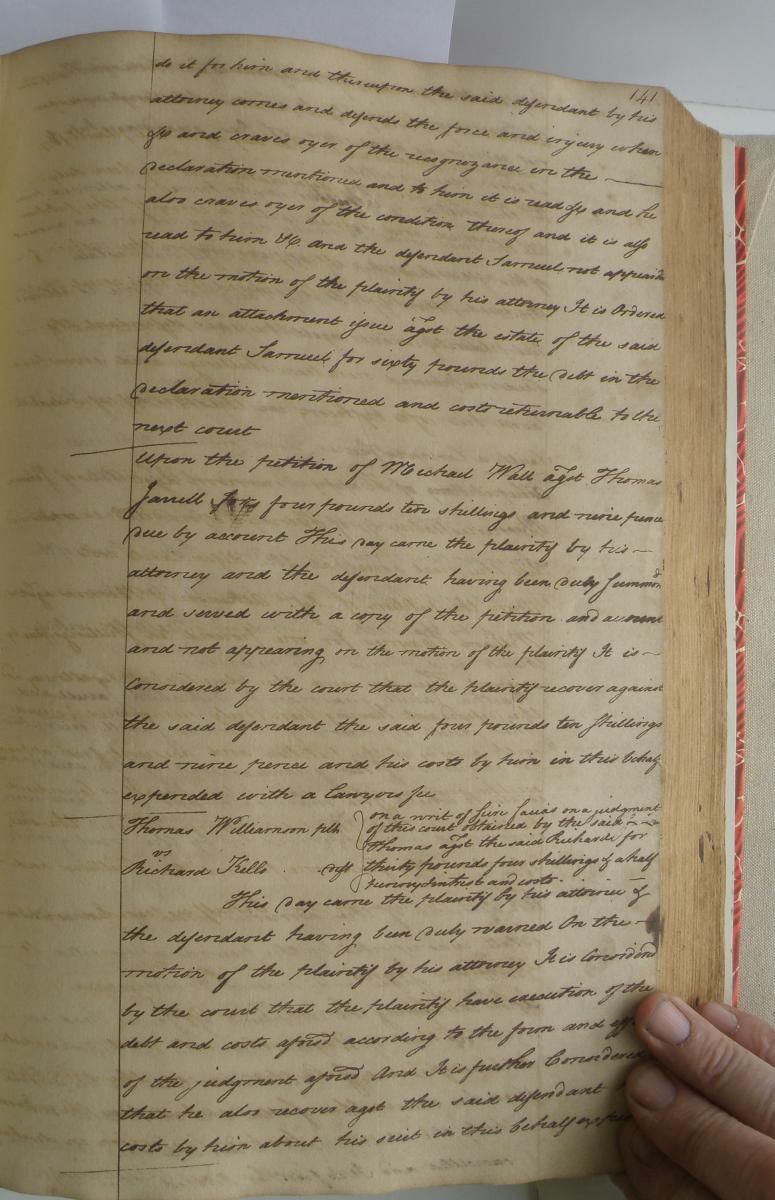 141
do it for him and thereupon the said defendant by his
attorney comes and defends the force and injury when
&c and craves oyer of the recognizance in the
declaration mentioned and to him it is read &c and he
also craves oyer of the condition thereof and it is also
read to him &c. and the defendant Samuel not appearing
on the motion of the plaintif by his attorney It is Ordered
that an attachment issue agst the estate of the said
defendant Samuel for sixty pounds the debt in the
declaration mentioned and costs returnable to the
next court
Upon the petition of Michael Wall agst Thomas
Jarrell for four pounds ten shillings and nine pence
due by account This day came the plaintif by his
attorney and the defendant having been duly summond
and served with a copy of the petition and account
and not appearing on the motion of the plaintif It is
Considered by the court that the plaintif recover against
the said defendant the said four pounds ten shillings
and nine pence and his costs by him in this behalf
expended with a lawyers fee
Thomas Williamson plt
vs
Richard Kells deft
on a writ of scire facias on a judgment
of this court obtained by the said
Thomas agst the said Richard for
thirty pounds four shillings & a half
penny Intrist and costs
This day came the plaintif by his attorney &
the defendant having been duly warned On the
motion of the plaintif by his attorney It is Considered
by the court that the plaintif have execution of the
debt and costs aforsd according to the form and
of the judgment aforsd And It is further Considered
that he also recover agst the said defendant
costs by him about his suit in this behalf